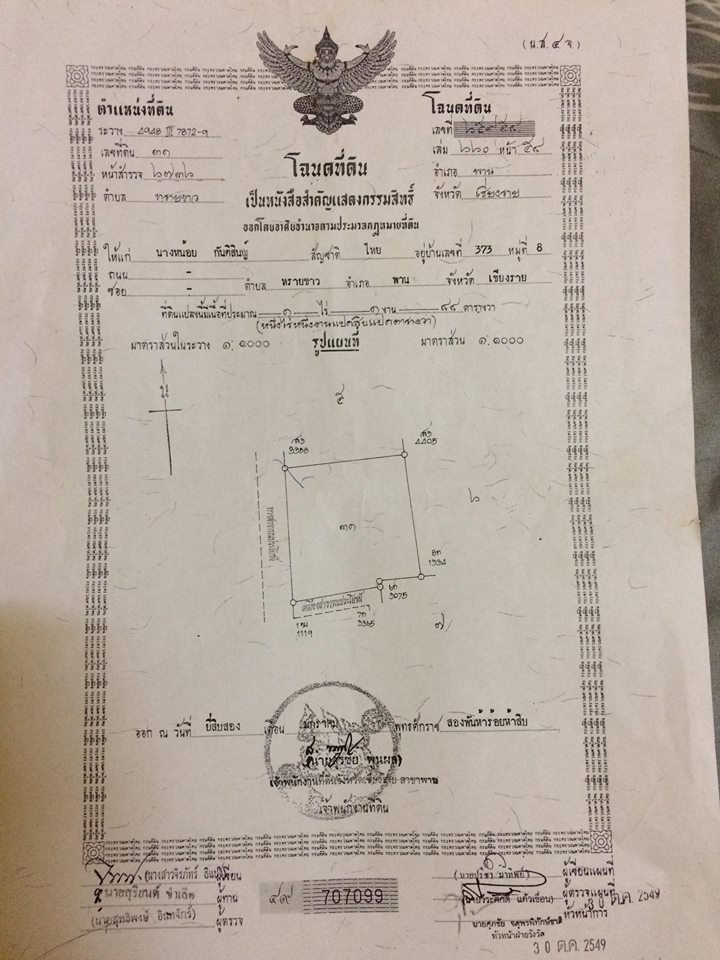 (น.ส.๔ จ)
ตำแหน่งที่ดิน
ระวาง 4948 III 7872-9
เลขที่ดิน ๓๑
หน้าสำรวจ ๒๗๓๖
ตำบล ทรายขาว
โฉนดที่ดิน
เลขที่
เล่ม ๖๖๐ หน้า ๕๙
อำเภอ พาน
จังหวัด เชียงราย
โฉนดที่ดิน
เป็นหนังสือสำคัญแสดงกรรมสิทธิ์
ออกโดยอาศัยอำนาจตามประมวลกฎหมายที่ดิน
ให้แก่ นางหน่อย กันทิสินธุ์ สัญชาติ ไทย อยู่บ้านเลขที่ 373 หมู่ที่ 8
ถนน - ตำบล ทรายขาว อำเภอ พาน จังหวัด เชียงราย
ซอย -
ที่ดินแปลงนี้มีเนื้อที่ประมาณ ๑ ไร่ ๑ งาน ๘๘ ตารางวา
(หนึ่งไร่หนึ่งงานแปดสิบแปดตารางวา)
มาตราส่วนในระวาง ๑:๑๐๐๐ รูปแผนที่ มาตราส่วน ๑:๑๐๐๐
น
๕
3386
4405
๓๑
๖
1934
3075
3365
1119
๗
ออก ณ วันที่ ยี่สิบสอง เดือน มกราคม พุทธศักราช สองพันห้าร้อยห้าสิบ
(นายสุรชัย พูนผล)
เจ้าพนักงานที่ดินจังหวัดเชียงราย สาขาพาน
เจ้าพนักงานที่ดิน
ผู้เขียน
ผู้ทาน
ผู้ตรวจ
๔๙ 707099
ผู้เขียนแผนที่
ผู้ตรวจแผนที่
หัวหน้าการ
30 ต.ค. 2549
หัวหน้าฝ่ายรังวัด
30 ต.ค. 2549